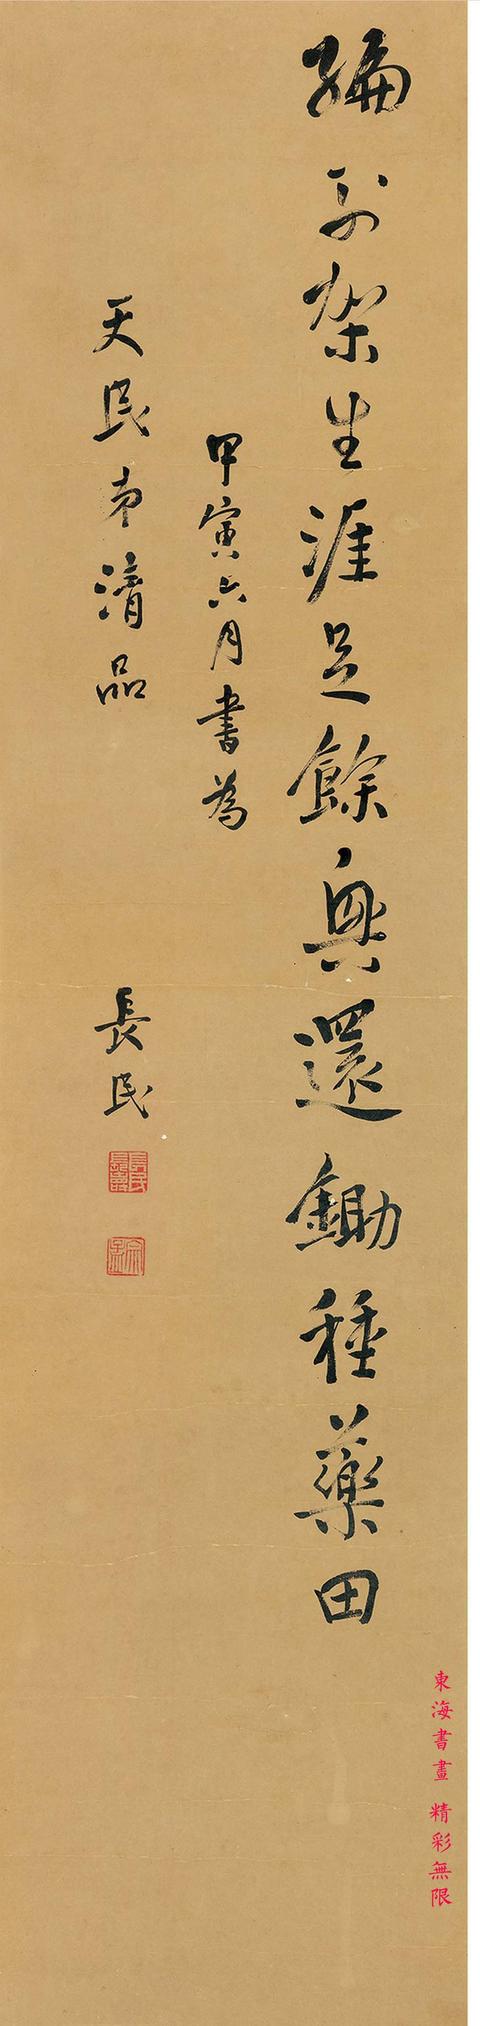 編列架生涯足餘興還鋤種藥田
甲寅六月書為
天民弟清品
長民
東海書畫 精彩無限